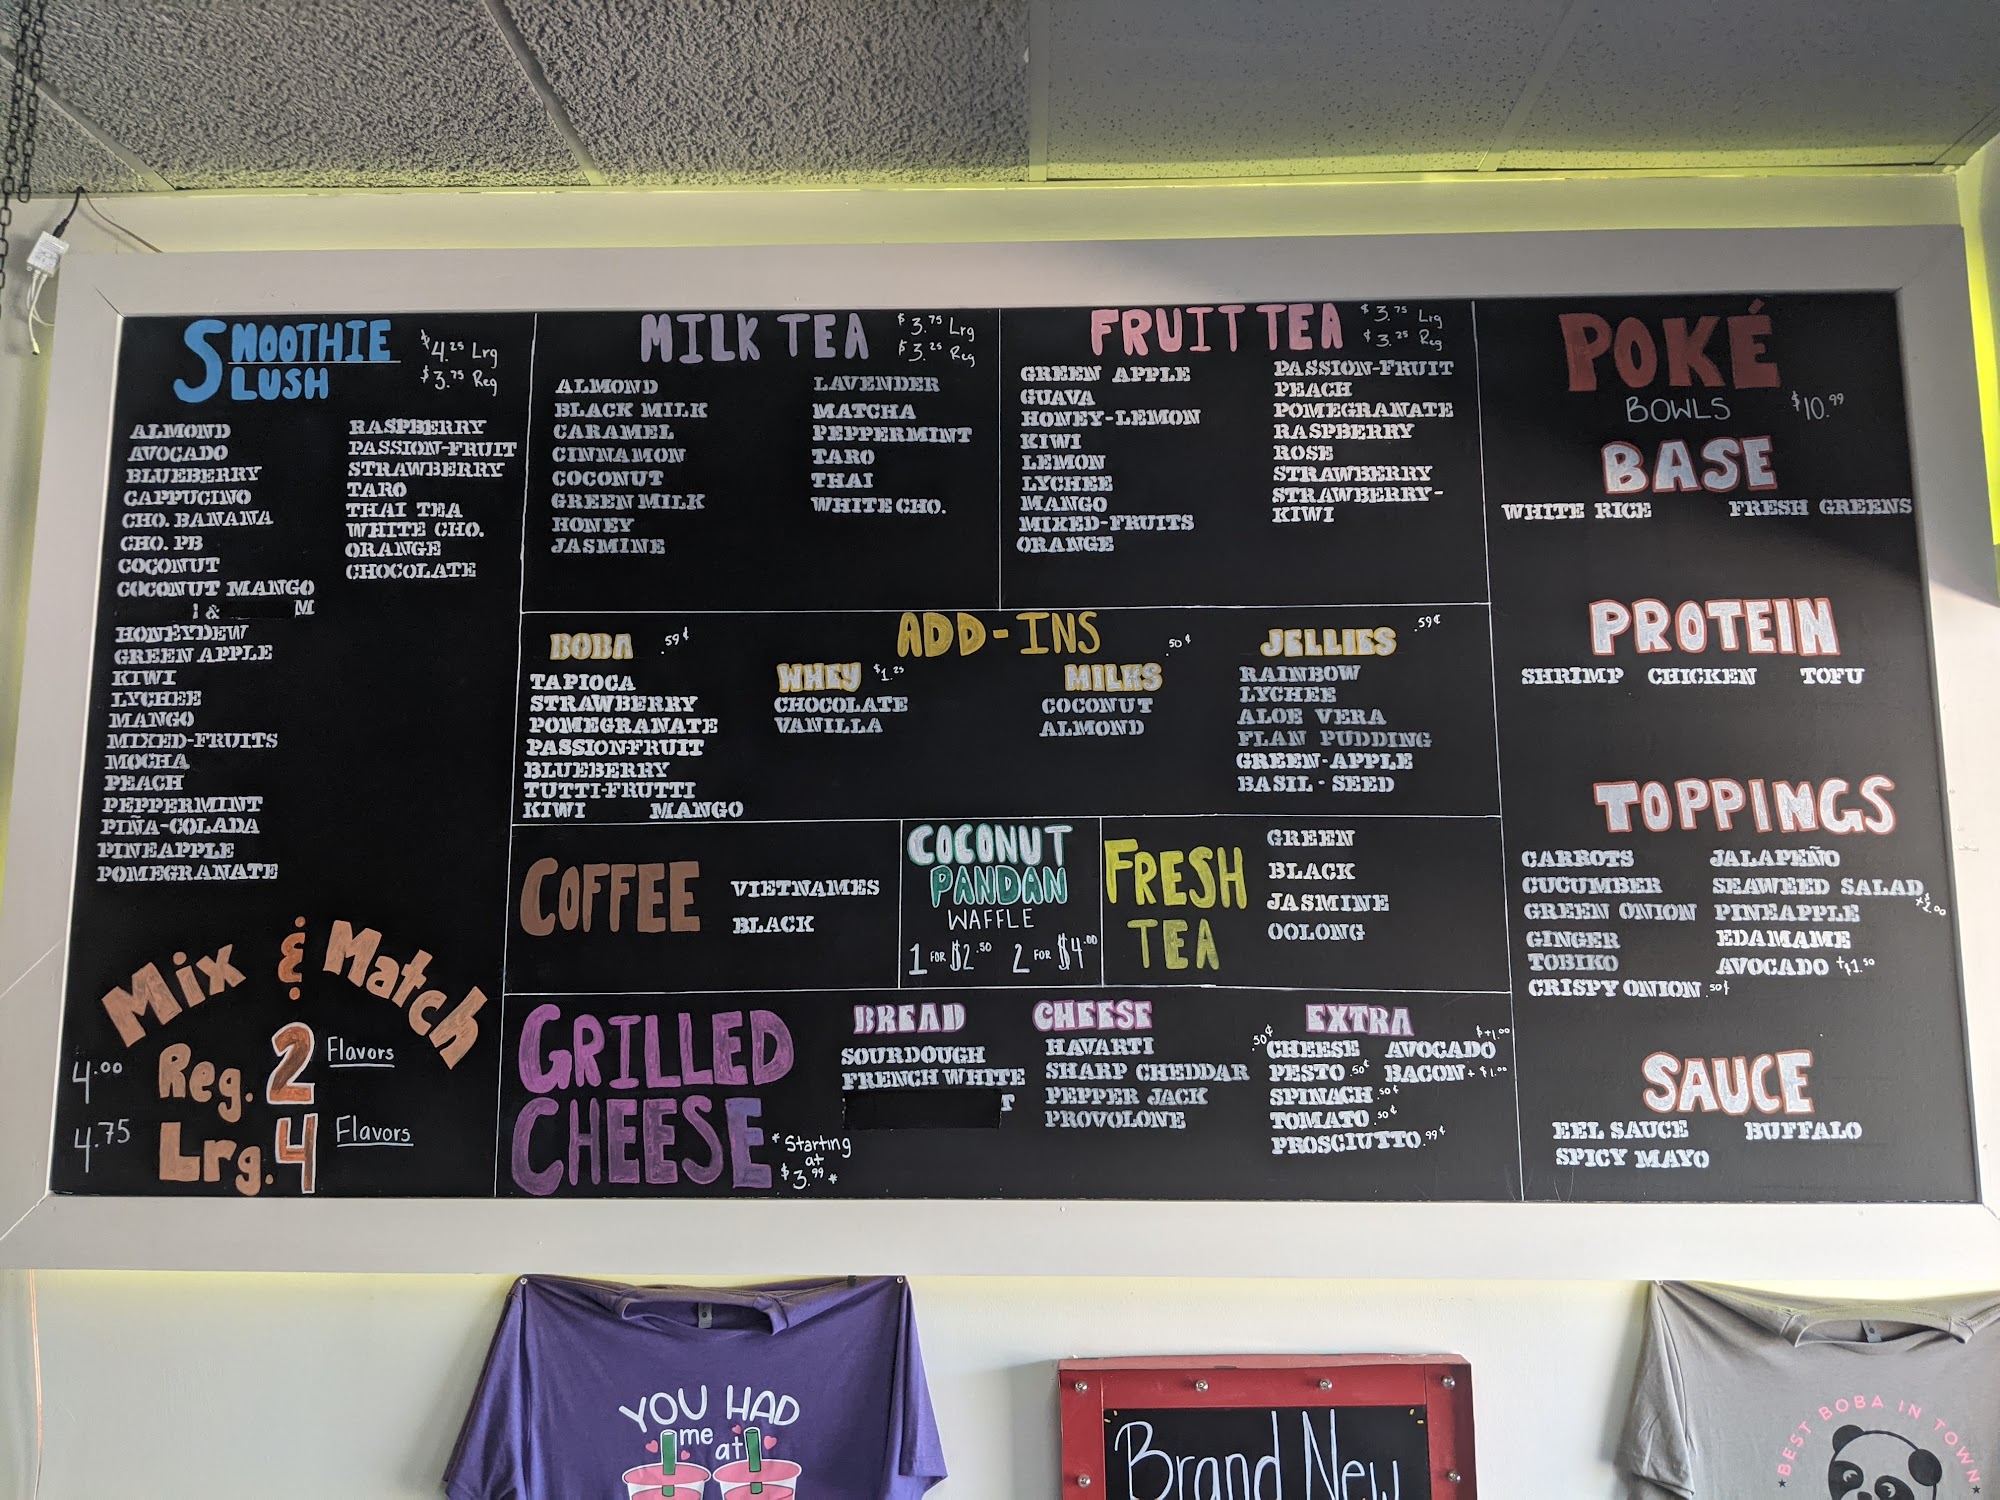 SMOOTHIE
SLUSH
$4.25 Lrg
$3.75 Reg
ALMOND
AVOCADO
BLUEBERRY
CAPPUCINO
CHO. BANANA
CHO. PB
COCONUT
COCONUT MANGO
&
HONEYDEW
GREEN APPLE
KIWI
LYCHEE
MANGO
MIXED-FRUITS
MOCHA
PEACH
PEPPERMINT
PIÑA-COLADA
PINEAPPLE
POMEGRANATE
RASPBERRY
PASSION-FRUIT
STRAWBERRY
TARO
THAI TEA
WHITE CHO.
ORANGE
CHOCOLATE
Mix & Match
4.00 Reg. 2 Flavors
4.75 Lrg. 4 Flavors
MILK TEA
$3.75 Lrg
$3.25 Reg
ALMOND
BLACK MILK
CARAMEL
CINNAMON
COCONUT
GREEN MILK
HONEY
JASMINE
LAVENDER
MATCHA
PEPPERMINT
TARO
THAI
WHITE CHO.
FRUIT TEA
$3.75 Lrg
$3.25 Reg
GREEN APPLE
GUAVA
HONEY-LEMON
KIWI
LEMON
LYCHEE
MANGO
MIXED-FRUITS
ORANGE
PASSION-FRUIT
PEACH
POMEGRANATE
RASPBERRY
ROSE
STRAWBERRY
STRAWBERRY-
KIWI
ADD-INS
BOBA .59¢
TAPIOCA
STRAWBERRY
POMEGRANATE
PASSIONFRUIT
BLUEBERRY
TUTTI-FRUTTI
KIWI MANGO
WHEY $1.25
CHOCOLATE
VANILLA
MILKS .50¢
COCONUT
ALMOND
JELLIES .59¢
RAINBOW
LYCHEE
ALOE VERA
FLAN PUDDING
GREEN-APPLE
BASIL-SEED
COFFEE
VIETNAMES
BLACK
COCONUT
PANDAN
WAFFLE
1 FOR $2.50 2 FOR $4.00
FRESH
TEA
GREEN
BLACK
JASMINE
OOLONG
GRILLED
CHEESE
*Starting
at
$3.99*
BREAD
SOURDOUGH
FRENCH WHITE
T
CHEESE
HAVARTI
SHARP CHEDDAR
PEPPER JACK
PROVOLONE
EXTRA
.50¢ CHEESE AVOCADO $+1.00
PESTO .50¢ BACON +$1.00
SPINACH .50¢
TOMATO .50¢
PROSCIUTTO .99¢
POKÉ
BOWLS $10.99
BASE
WHITE RICE FRESH GREENS
PROTEIN
SHRIMP CHICKEN TOFU
TOPPINGS
CARROTS
CUCUMBER
GREEN ONION
GINGER
TOBIKO
CRISPY ONION .50¢
JALAPEÑO
SEAWEED SALAD
PINEAPPLE
EDAMAME
AVOCADO +$1.50
SAUCE
EEL SAUCE BUFFALO
SPICY MAYO
YOU HAD
me at
Brand New
BEST BOBA IN TOWN